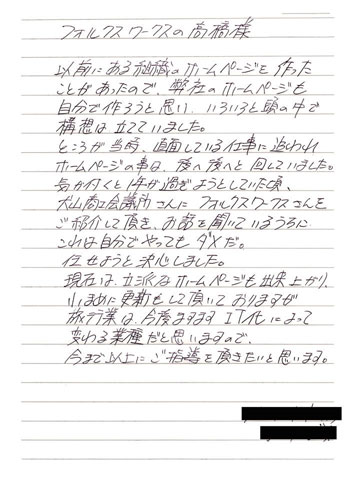 フォルクスワークスの高橋様
以前にある組織のホームページを作った
ことがあったので、弊社のホームページも
自分で作ろうと思い、いろいろと頭の中で
構想は立てていました。
ところが当時、直面している仕事に追われ
ホームページの事は、後へ後へと回していました。
気が付くと1年が過ぎようとしていた頃、
犬山商工会議所さんにフォルクスワークスさんを
ご紹介して頂き、お話を聞いているうちに
これは自分でやってもダメだ。
任せようと決心しました。
現在は、立派なホームページも出来上がり、
小まめに更新もして頂いておりますが
旅行業は、今後ますますIT化によって
変わる業種だと思いますので、
今まで以上にご指導を頂きたいと思います。